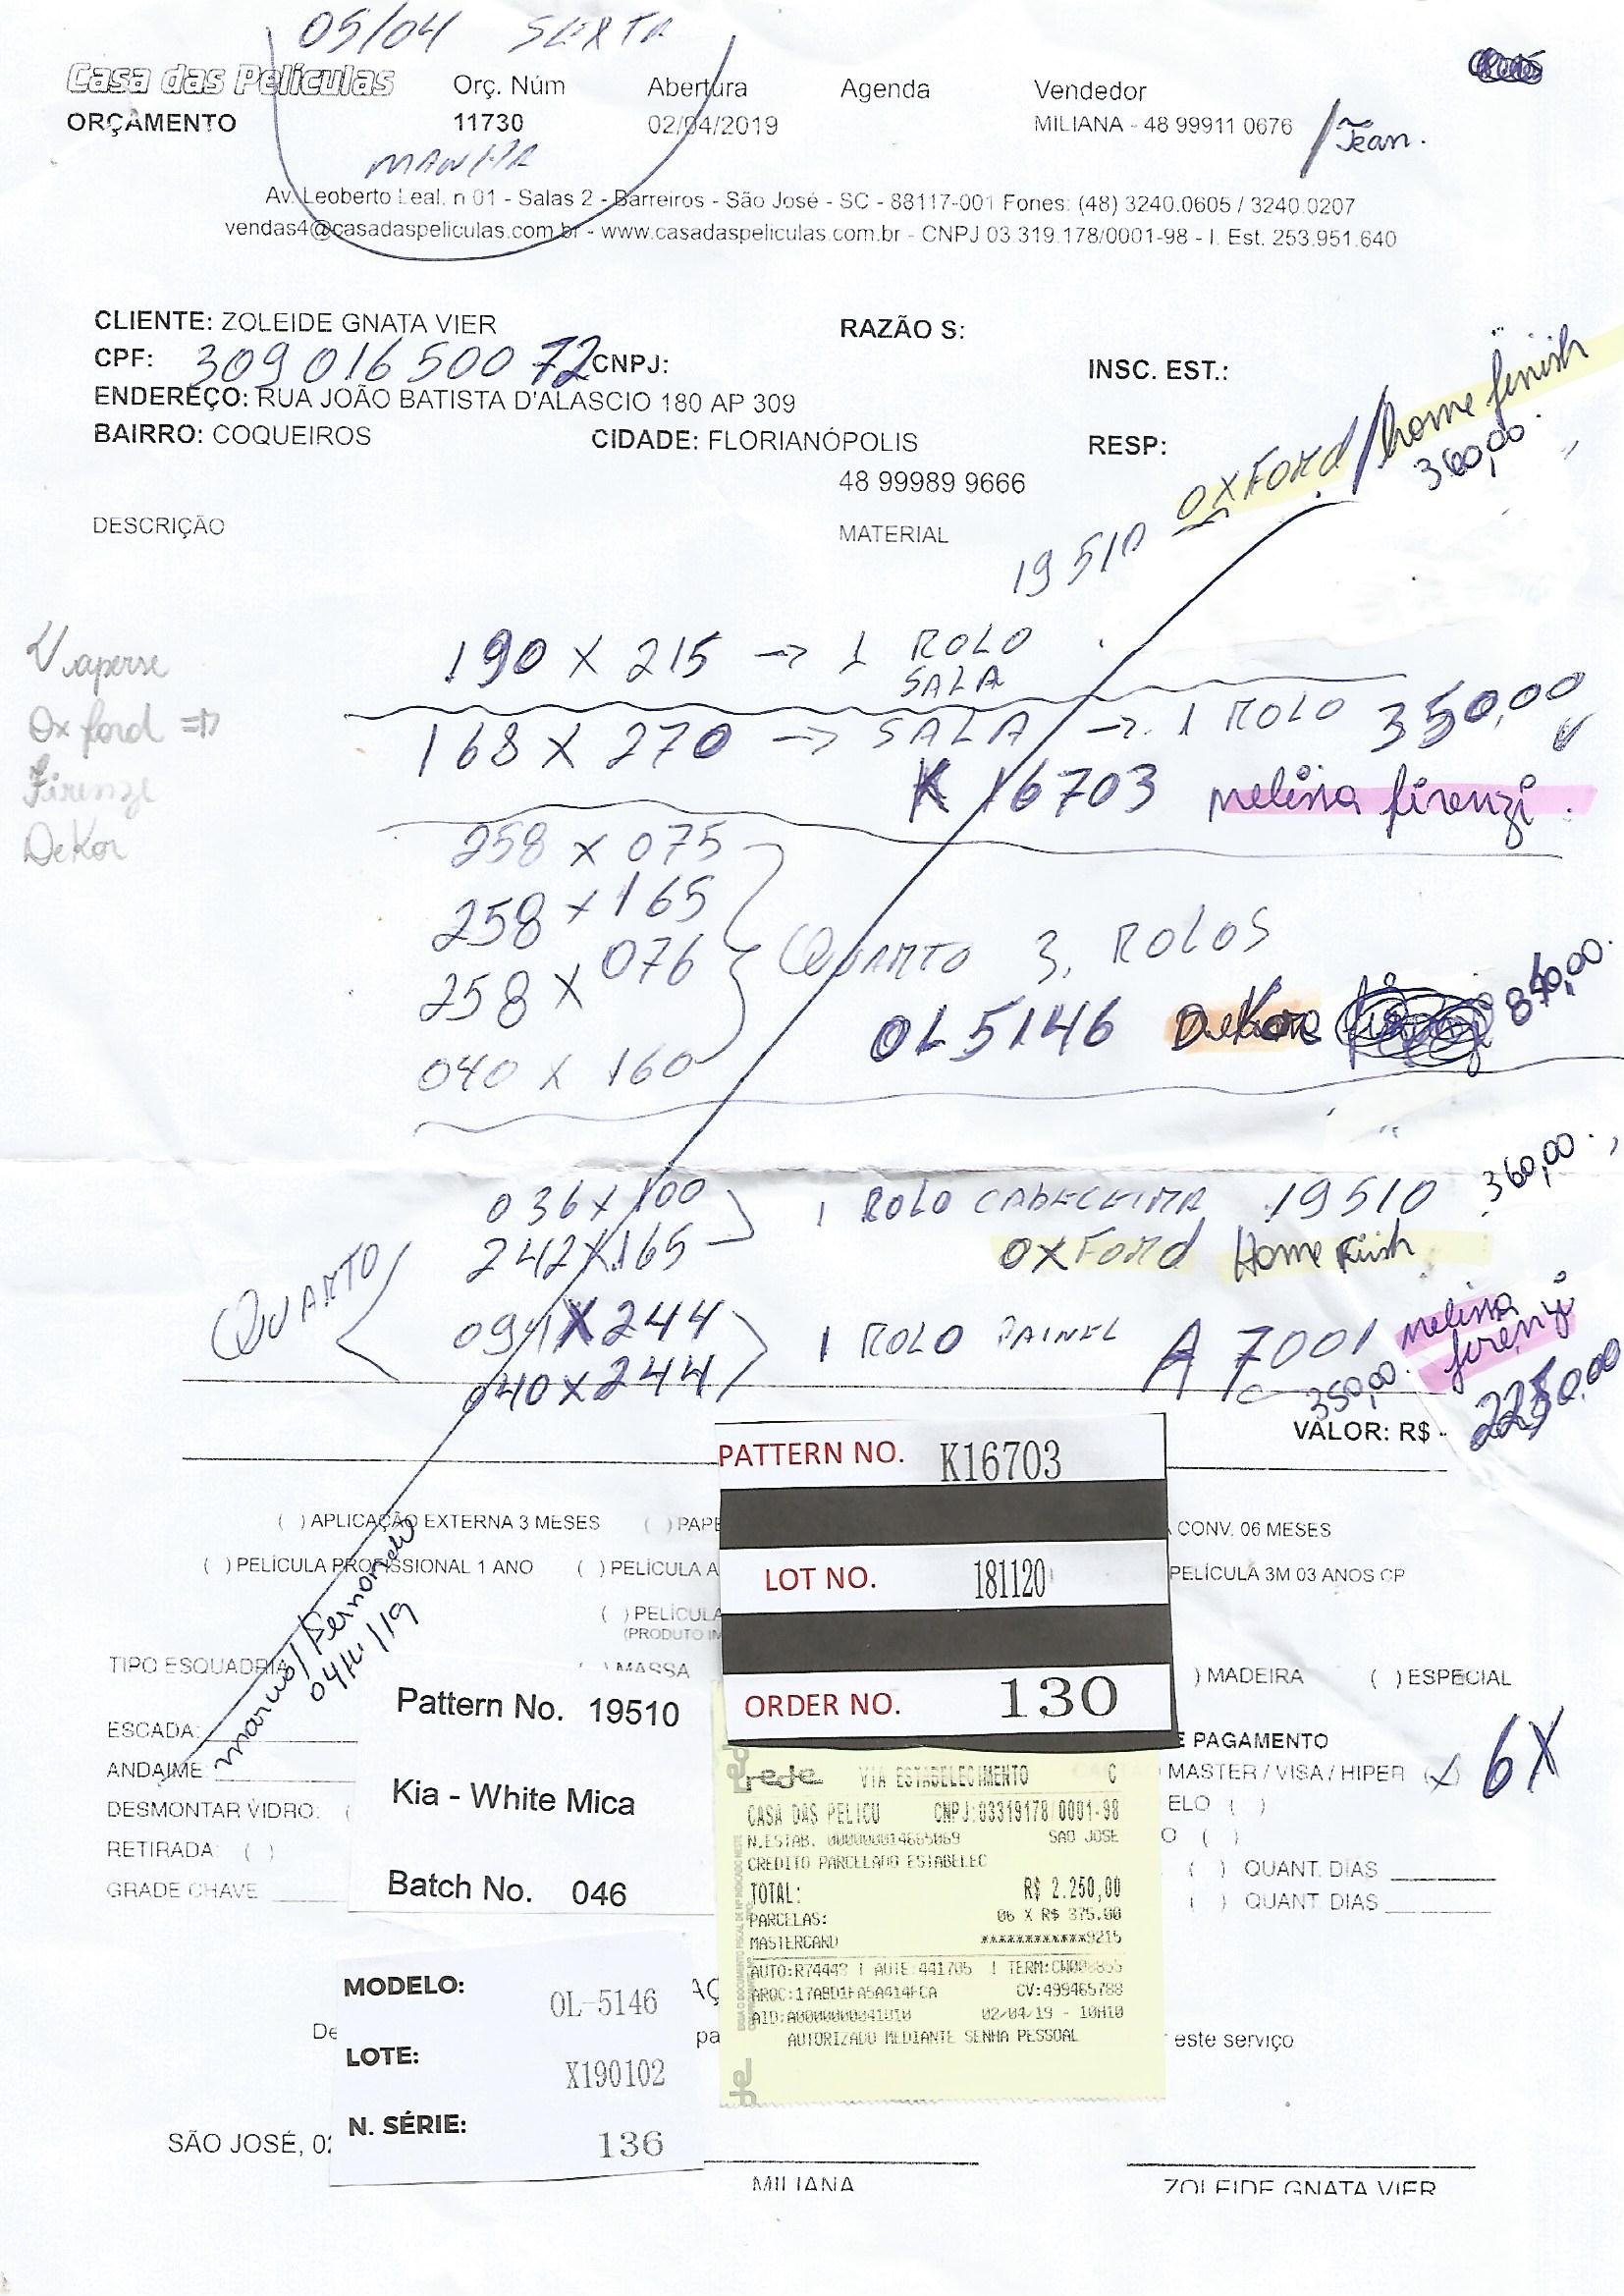 05/04 SEXTA
Casa das Películas Orç. Núm Abertura Agenda Vendedor
ORÇAMENTO 11730 02/04/2019 MILIANA - 48 99911 0676 / Jean.
MANHA
Av. Leoberto Leal, n 01 - Salas 2 - Barreiros - São José - SC - 88117-001 Fones: (48) 3240.0605 / 3240.0207
vendas4@casadaspeliculas.com.br - www.casadaspeliculas.com.br - CNPJ 03.319.178/0001-98 - I. Est. 253.951.640
CLIENTE: ZOLEIDE GNATA VIER RAZÃO S:
CPF: 309 016 500 72 CNPJ: INSC. EST.:
ENDEREÇO: RUA JOÃO BATISTA D'ALASCIO 180 AP 309
BAIRRO: COQUEIROS CIDADE: FLORIANÓPOLIS RESP:
48 99989 9666
19510 OXFORD / home finish
360,00
DESCRIÇÃO MATERIAL
Viaperse
Oxford =>
Firenze
DeKor
190 X 215 -> 1 ROLO
SALA
168 X 270 -> SALA -> 1 ROLO 350,00
K 16703 melissa firenzi.
258 X 075
258 X 165
258 X 076 QUARTO 3. ROLOS
OL5146 DeKore 840,00.
040 X 160
036 X 100 1 ROLO CABECEIRA 19510 360,00.
242 X 165 OXFORD Home Finish
QUARTO
091 X 244 1 ROLO PAINEL A 7001 melissa firenzi
040 X 244 350,00.
VALOR: R$ - 2250,00
( ) APLICAÇÃO EXTERNA 3 MESES ( ) PAPE CONV. 06 MESES
( ) PELÍCULA PROFISSIONAL 1 ANO ( ) PELÍCULA A PELÍCULA 3M 03 ANOS CP
( ) PELÍCULA
(PRODUTO IM
TIPO ESQUADRIA ( ) MASSA ) MADEIRA ( ) ESPECIAL
Fernando
ESCADA:
ANDAIME:
DESMONTAR VIDRO: (
RETIRADA: ( )
GRADE CHAVE
PATTERN NO. K16703
LOT NO. 181120
ORDER NO. 130
Pattern No. 19510
Kia - White Mica
Batch No. 046
E PAGAMENTO
MASTER / VISA / HIPER (X) 6X
ELO ( )
O ( )
( ) QUANT. DIAS
( ) QUANT. DIAS
rede VIA ESTABELECIMENTO C
CASA DAS PELICU CNPJ:03319178/0001-98
N.ESTAB. 000000014665069 SAO JOSE
CREDITO PARCELADO ESTABELEC
TOTAL: R$ 2.250,00
PARCELAS: 06 X R$ 375,00
MASTERCARD ************9215
CV:499465788
02/04/19 - 10H10
AUTORIZADO MEDIANTE SENHA PESSOAL
MODELO: OL-5146
LOTE: X190102
N. SÉRIE: 136
De pa este serviço
SÃO JOSÉ, 02
MILIANA ZOLEIDE GNATA VIER